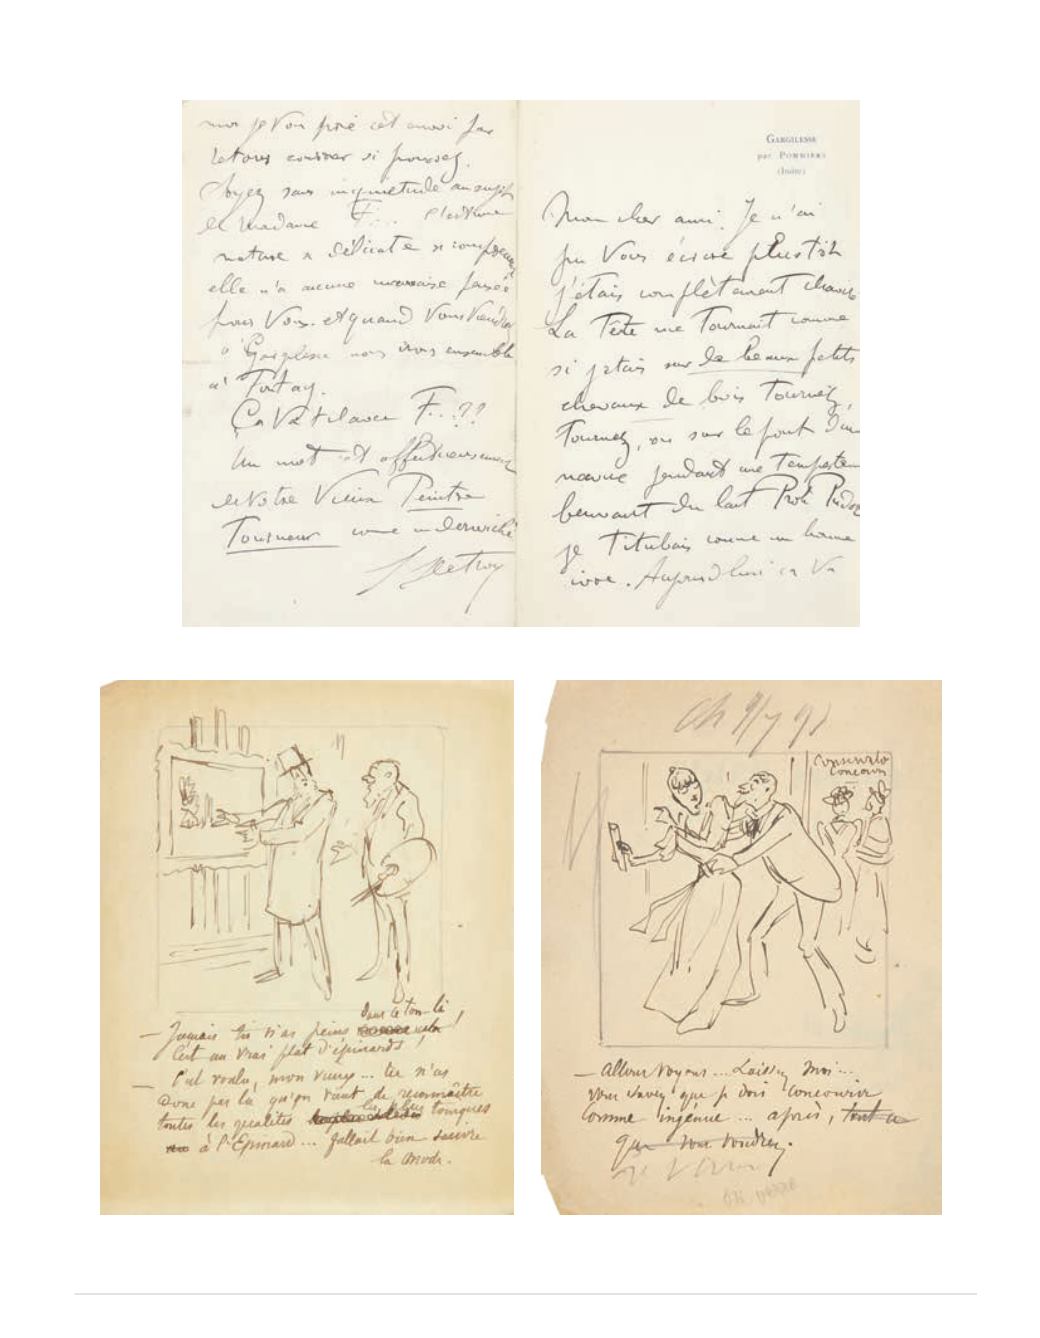 Gargilesse
par Pommiers
(Indre)
Mon cher ami. Je n'ai
pu Vous écrire plus tôt
j'étais complètement chaviré
La Tête me Tournait comme
si j'étais sur de beaux petits
chevaux de bois Tournez,
Tournez, ou sur le pont d'un
navire pendant une Tempête
buvant du lait
je Titubais comme un homme
ivre. Aujourd'hui ça Va
je Vous prie
si pouvez.
Soyez sans inquiétude au sujet
de Madame F... c'est une
nature délicate
elle n'a aucune mauvaise pensée
pour Vous. et quand Vous Viendrez
à Gargilesse nous irons ensemble
à
Ça Va-t-il avec F...??
Un mot et affectueusement
de Votre Vieux Peintre
Tourneur comme un derviche
dans ce ton-là
— Jamais tu n'as peint !
C'est un vrai plat d'épinards !
— C'est voulu, mon vieux... tu n'as
donc pas lu qu'on vient de reconnaître
toutes les qualités les plus toniques
à l'Epinard... fallait bien suivre
la mode.
Ch
Conservato
Concours
— Allons voyons... Laissez moi...
vous savez que je dois concourir
comme ingénue... après, tout ce
que vous voudrez.